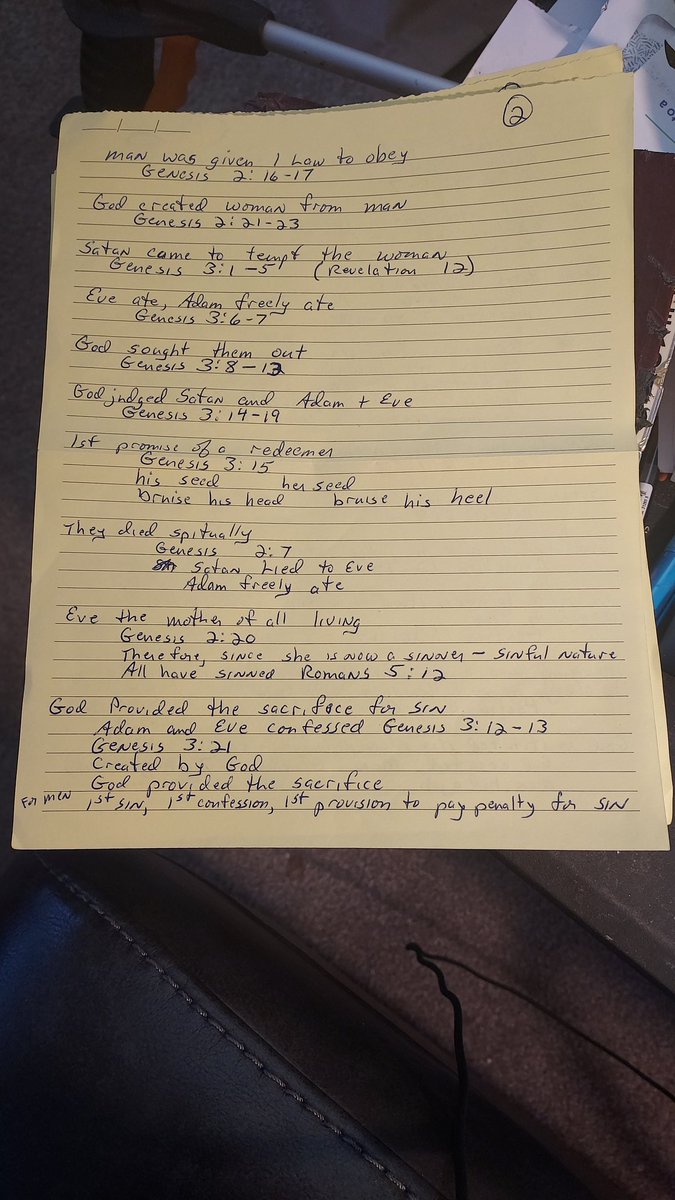 2
man was given 1 Law to obey
Genesis 2:16-17
God created woman from man
Genesis 2:21-23
Satan came to tempt the woman
Genesis 3:1-5 (Revelation 12)
Eve ate, Adam freely ate
Genesis 3:6-7
God sought them out
Genesis 3:8-13
God judged Satan and Adam + Eve
Genesis 3:14-19
1st promise of a redeemer
Genesis 3:15
his seed her seed
bruise his head bruise his heel
They died spitually
Genesis 2:7
Satan Lied to Eve
Adam freely ate
Eve the mother of all living
Genesis 2:20
Therefore, since she is now a sinner - sinful nature
All have sinned Romans 5:12
God Provided the sacrifice for sin
Adam and Eve confessed Genesis 3:12-13
Genesis 3:21
Created by God
God provided the sacrifice
For men 1st sin, 1st confession, 1st provision to pay penalty for sin